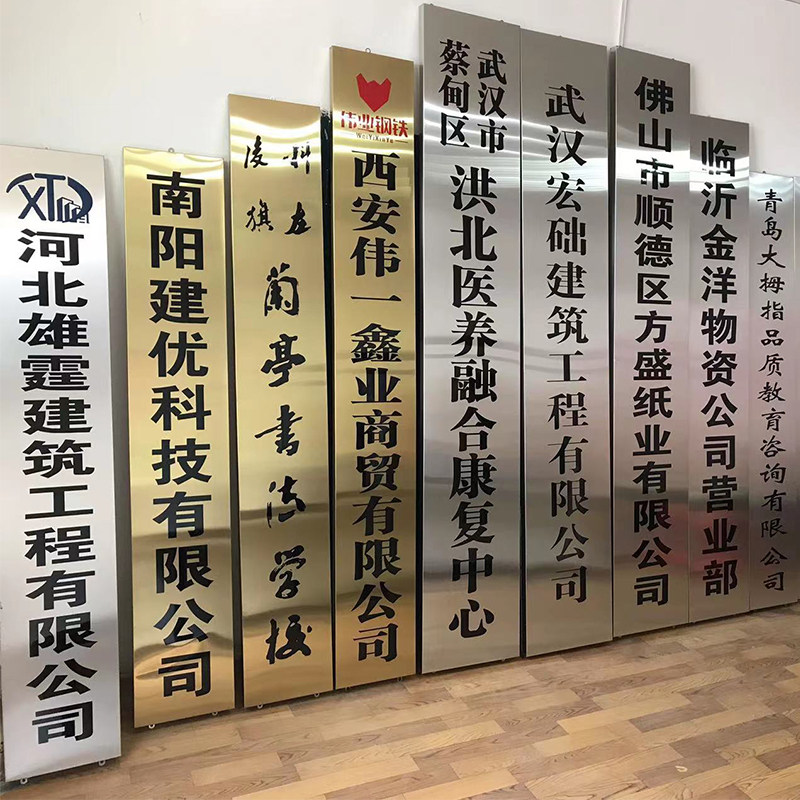 XTJ
河北雄霆建筑工程有限公司
南阳建优科技有限公司
科左
凌旗
蘭亭书法学校
伟业钢铁
西安伟一鑫业商贸有限公司
武汉市
蔡甸区
洪北医养融合康复中心
武汉宏础建筑工程有限公司
佛山市顺德区方盛纸业有限公司
临沂金洋物资公司营业部
青岛大拇指品质教育咨询有限公司